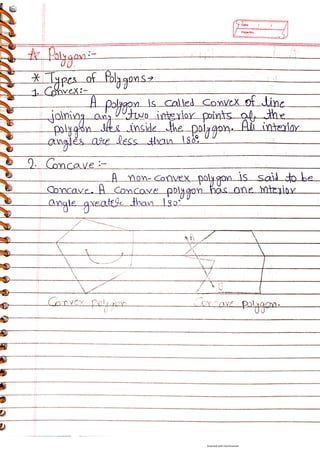 Date / /
Page No.
* Polygon:-
* Types of Polygons→
1. Convex:-
A polygon is called convex of line
joining any two interior points of the
polygon lies inside the polygon. All interior
angles are less than 180°
2. Concave:-
A non-convex polygon is said to be
concave. A concave polygon has one interior
angle greater than 180°
Convex Polygon
Concave polygon.